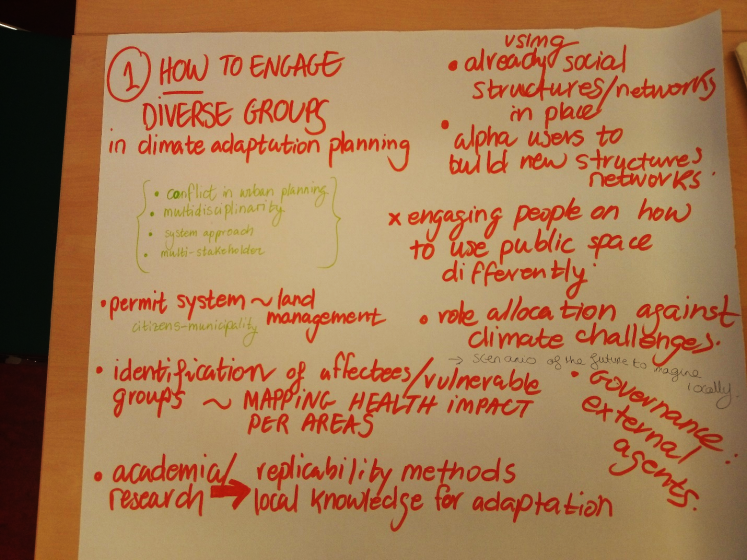 1 HOW TO ENGAGE
DIVERSE GROUPS
in climate adaptation planning
• conflict in urban planning.
• multidisciplinarity
• system approach
• multi-stakeholder
• permit system ~ land
management
citizens-municipality
• identification of affectees/vulnerable
groups ~ MAPPING HEALTH IMPACT
PER AREAS
• academia/
research → replicability methods
local knowledge for adaptation
using
• already social
structures/networks
in place
• alpha users to
build new structures
networks.
x engaging people on how
to use public space
differently.
• role allocation against
climate challenges.
→ scenario of the future to imagine
locally.
• Governance:
external
agents.